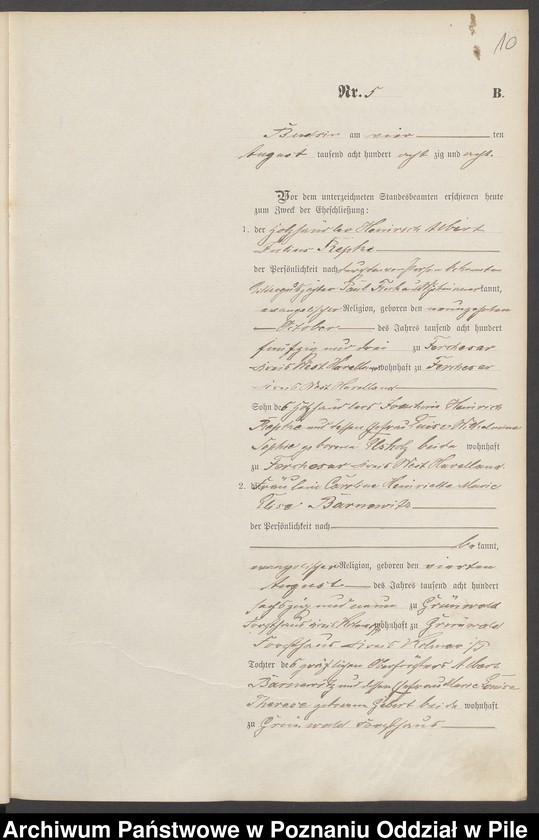 10
Nr. 5 B.
Budsin am vier ten
August tausend acht hundert acht zig und acht.
Vor dem unterzeichneten Standesbeamten erschienen heute
zum Zweck der Eheschließung:
1. der Heinrich Albert
Julius Repke
der Persönlichkeit nach
Paul kannt,
evangelischer Religion, geboren den neunzehnten
October des Jahres tausend acht hundert
fünfzig und drei zu Ferchesar
Kreis West Havelland wohnhaft zu Ferchesar
Kreis West Havelland
Sohn des Joachim Heinrich
Repke und dessen Ehefrau Luise Wilhelmine
Sophie geborene beide wohnhaft
zu Ferchesar Kreis West Havelland
2. Fräulein Caroline Henriette Marie
Elise Barnewitz
der Persönlichkeit nach
be kannt,
evangelischer Religion, geboren den vierten
August des Jahres tausend acht hundert
sechszig und neun zu Grünwald
Forsthaus Kreis wohnhaft zu Grünwald
Forsthaus Kreis Kolmar i/P
Tochter des gräflichen Oberförsters Albert
Barnewitz und dessen Ehefrau Marie Louise
Therese geborenen beide wohnhaft
zu Grünwald Forsthaus
Archiwum Państwowe w Poznaniu Oddział w Pile